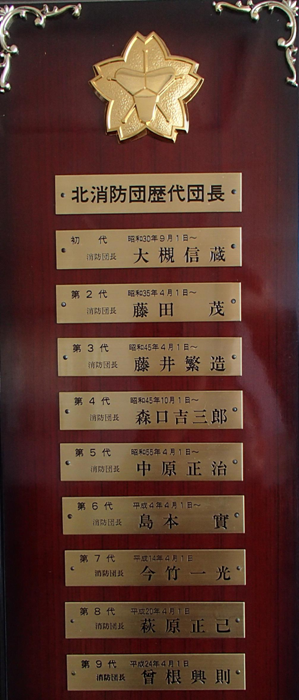 北消防団歴代団長
初代 昭和30年9月1日～
消防団長 大槻信蔵
第2代 昭和35年4月1日～
消防団長 藤田茂
第3代 昭和45年4月1日～
消防団長 藤井繁造
第4代 昭和45年10月1日～
消防団長 森口吉三郎
第5代 昭和55年4月1日～
消防団長 中原正治
第6代 平成4年4月1日～
消防団長 島本實
第7代 平成14年4月1日
消防団長 今竹一光
第8代 平成20年4月1日
消防団長 萩原正己
第9代 平成24年4月1日
消防団長 曾根興則